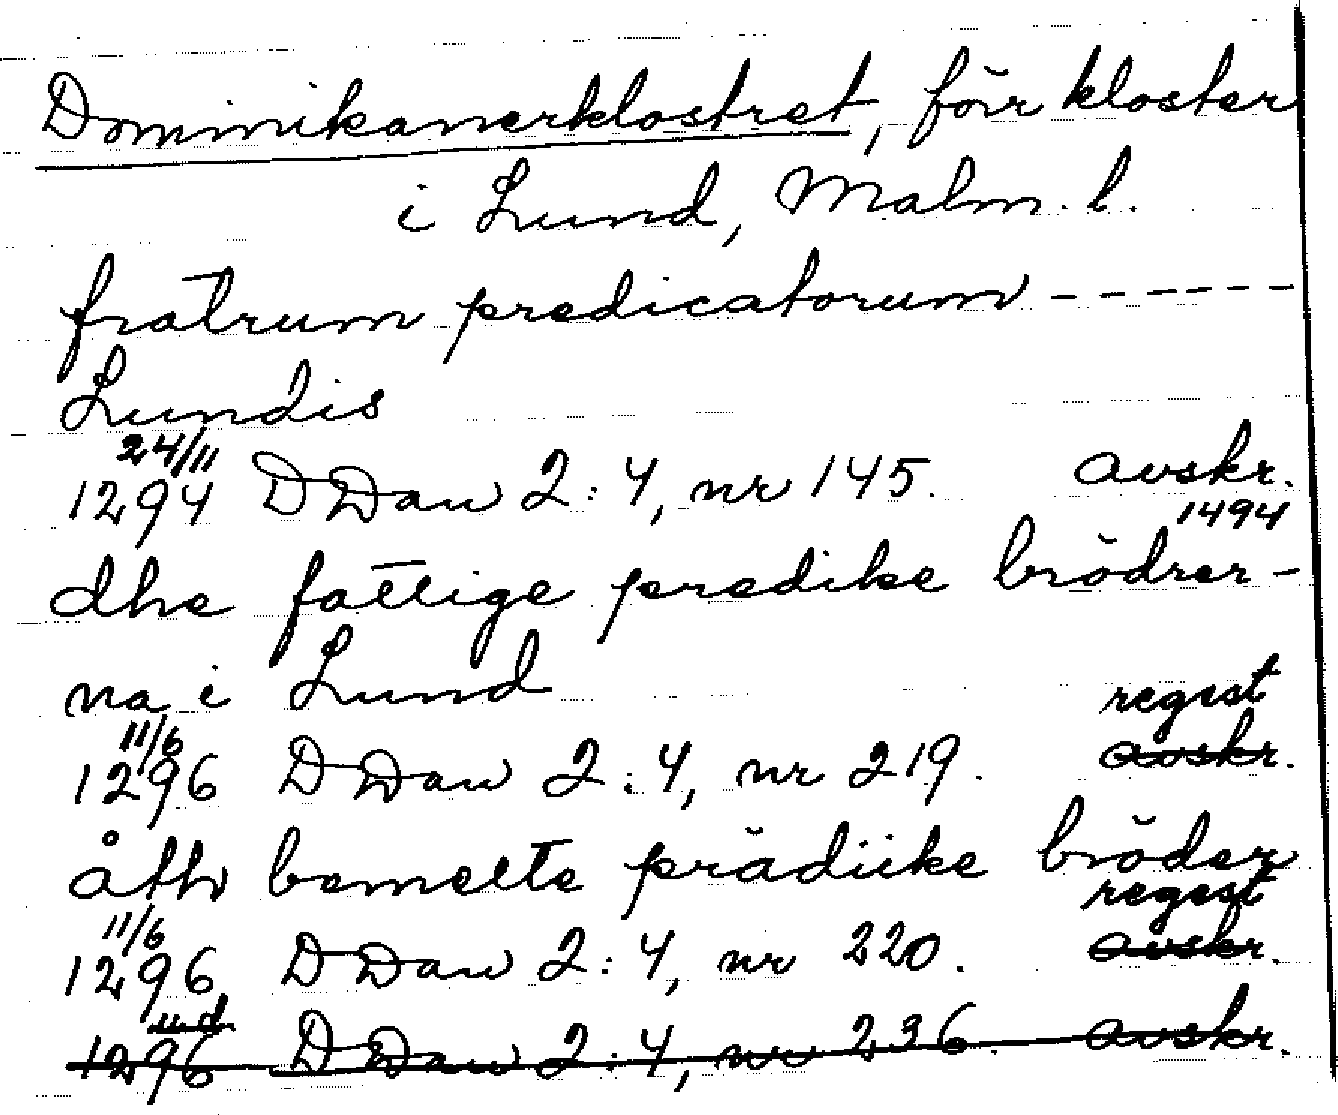 Dominikanerklostret, förr kloster
i Lund, Malm. l.
fratrum predicatorum ------
Lundis
24/11
1294 DDan 2:4, nr 145. avskr.
1494
dhe fattige predike brödrer-
na i Lund
regest
11/6
1296 DDan 2:4, nr 219. avskr.
åth bemelte prädiike bröder
regest
11/6
1296 DDan 2:4, nr 220. avskr.
u.d.
1296 DDan 2:4, nr 236. avskr.